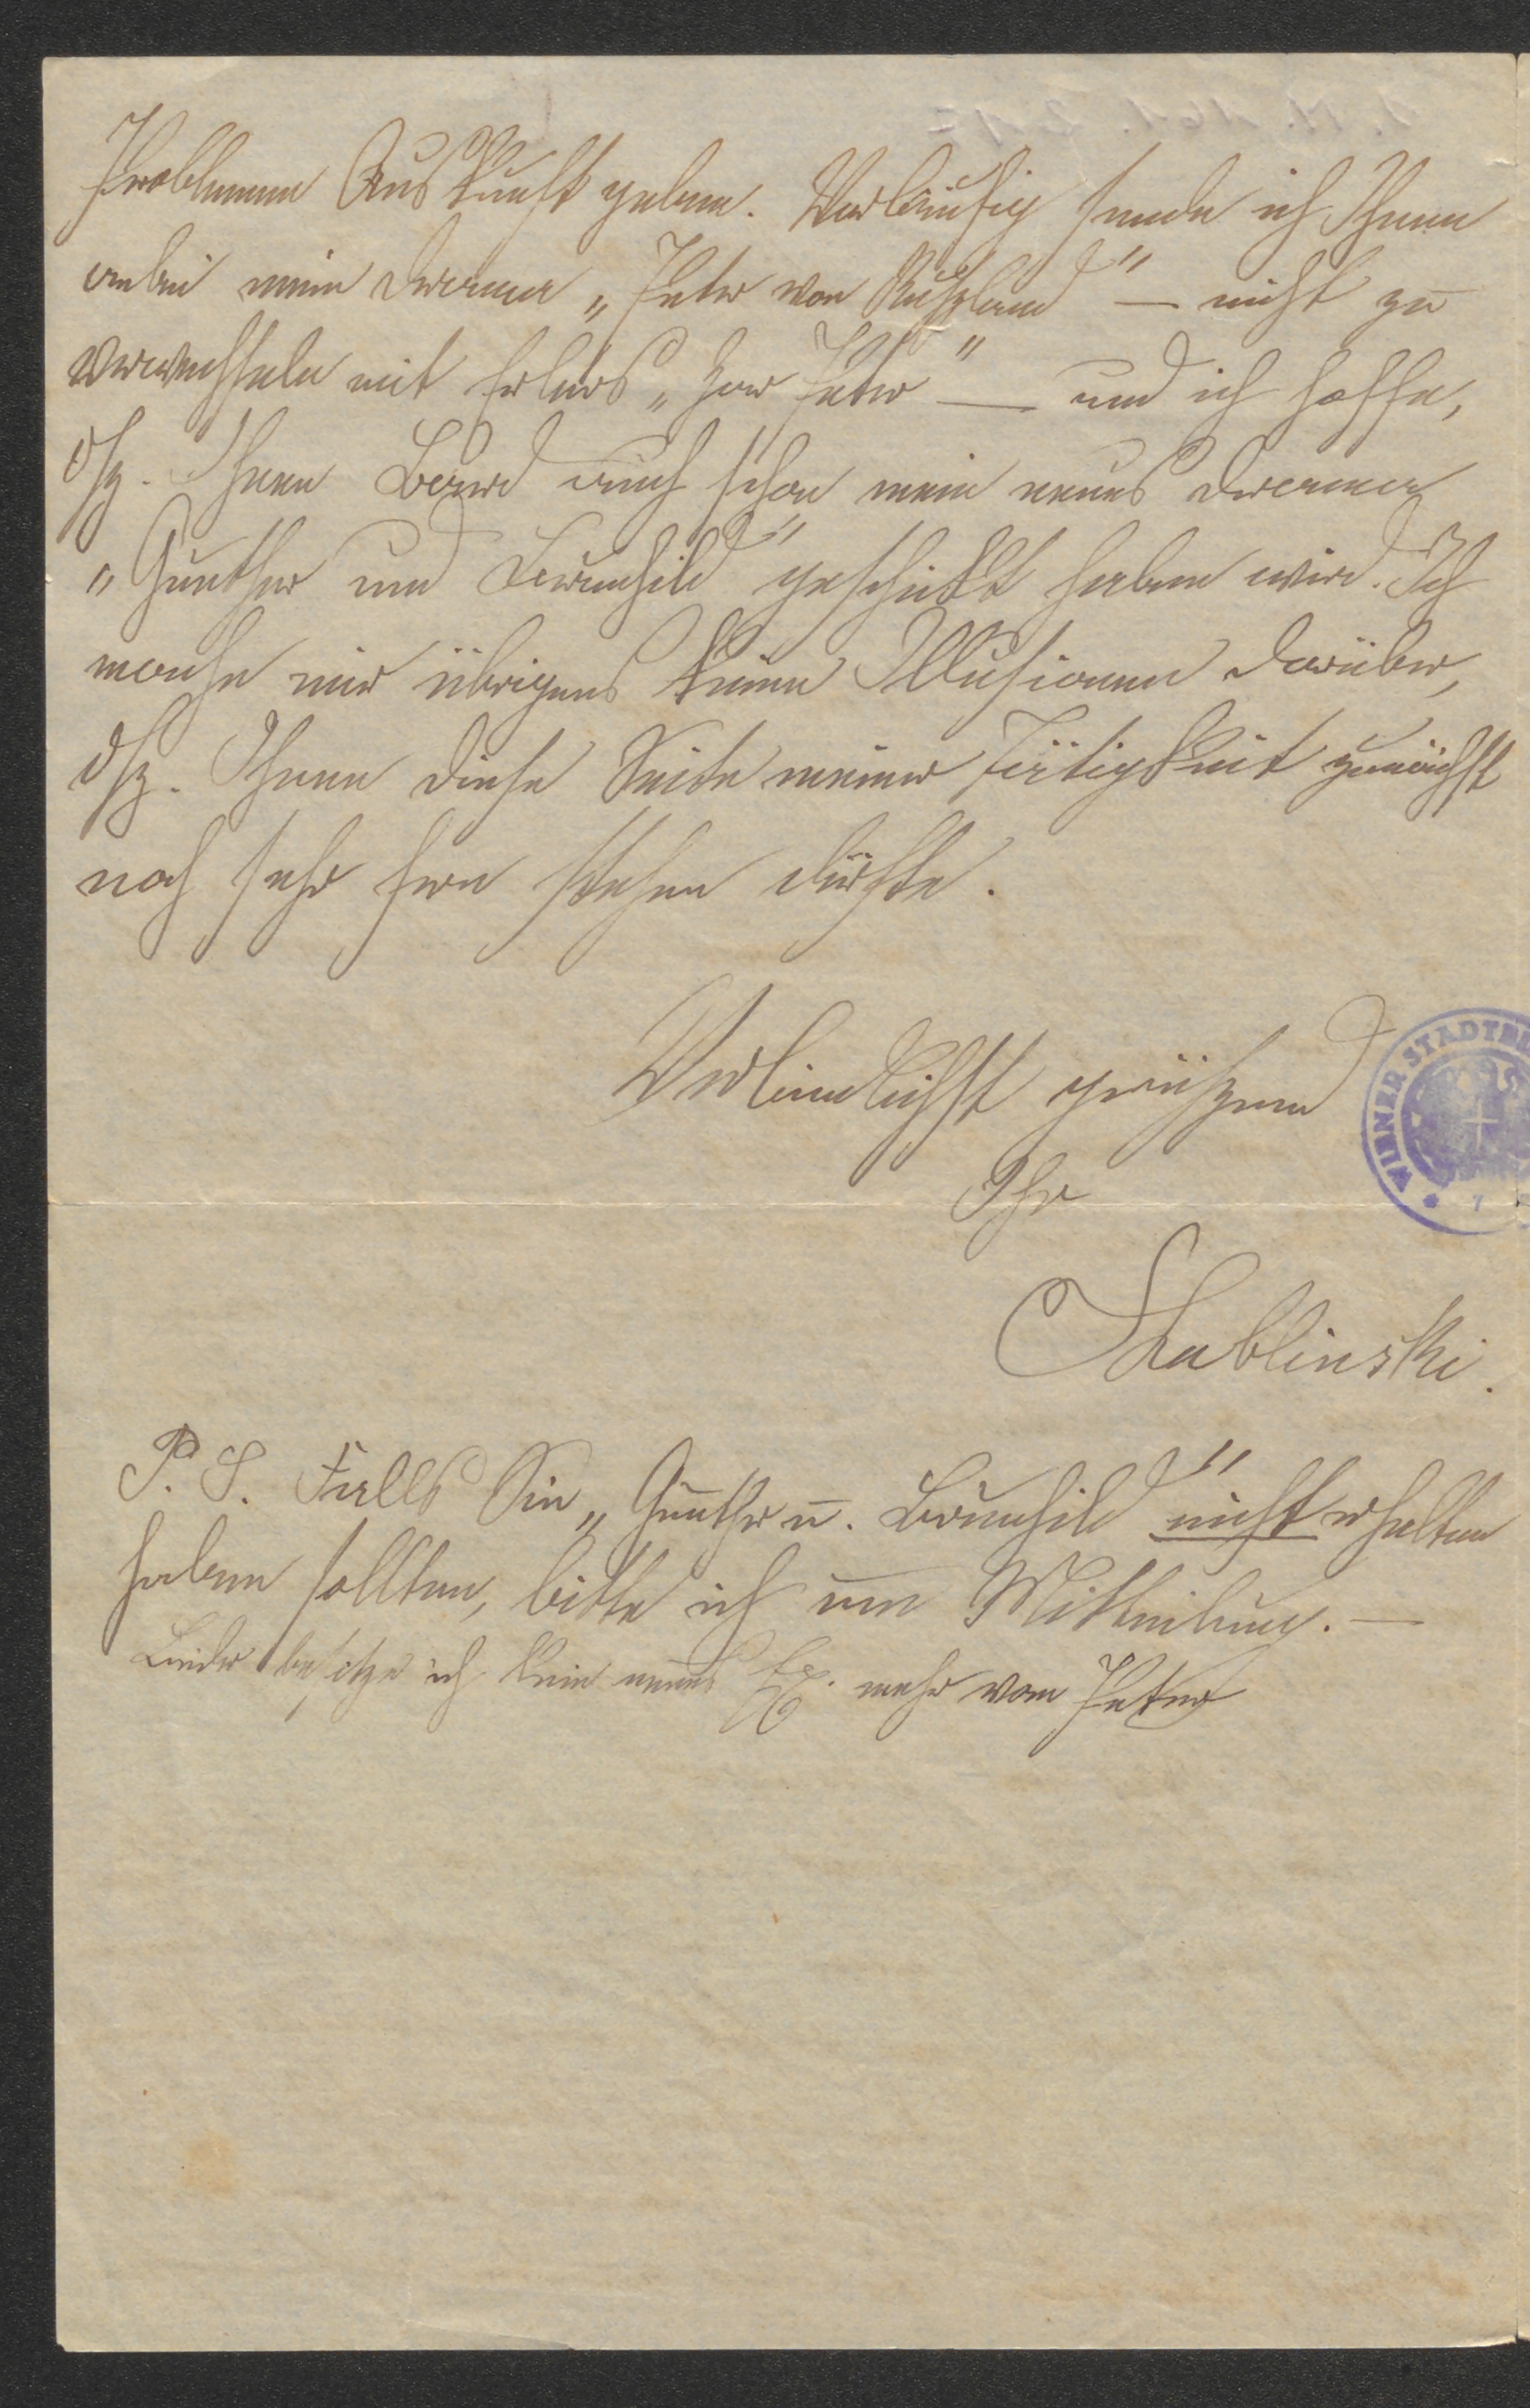 Problemen Auskunft geben. Vorläufig sende ich Ihnen
anbei mein Drama „Peter von Rußland" — nicht zu
verwechseln mit Erlers „Zar Peter" — und ich hoffe,
dß. Ihnen Bard auch schon mein neues Drama
„Gunther und Brunhild" geschickt haben wird. Ich
mache mir übrigens keine Illusionen darüber,
dß. Ihnen diese Seite meiner Tätigkeit zunächst
noch sehr fern stehen dürfte.
Verbindlichst grüßend
Ihr
SLublinski.
P. S. Falls Sie „Gunther u. Brunhild" nicht erhalten
haben sollten, bitte ich um Mitteilung. —
Leider besitze ich kein neues Ex. mehr vom Peter
WIENER STADTBI